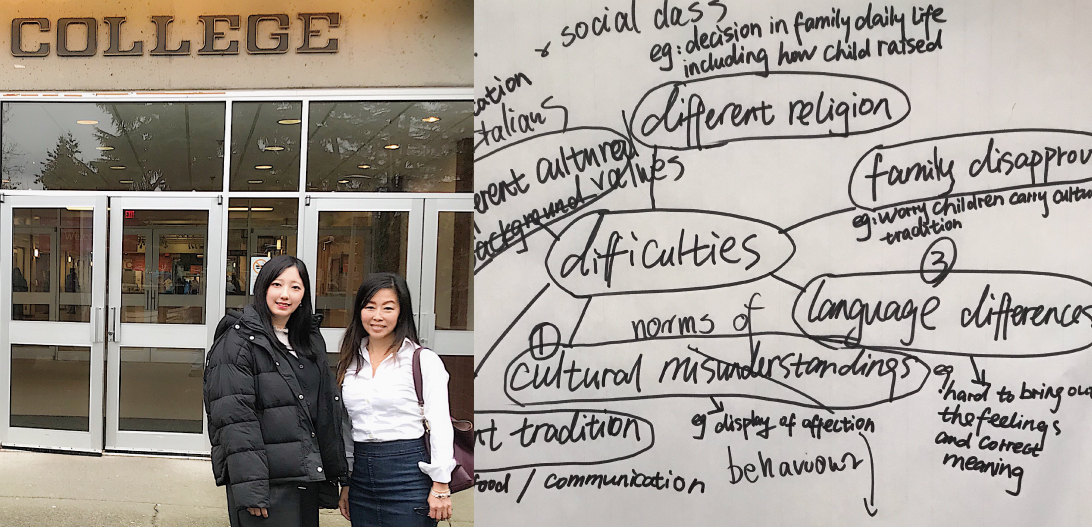 COLLEGE
social class
eg: decision in family daily life
including how child raised
different religion
cultural
values
background
family
eg: worry children carry
tradition
difficulties
3
language differences
1
norms of
cultural misunderstandings
eg
hard to bring
the feelings
and correct
meaning
tradition
eg display of affection
behaviour
food / communication